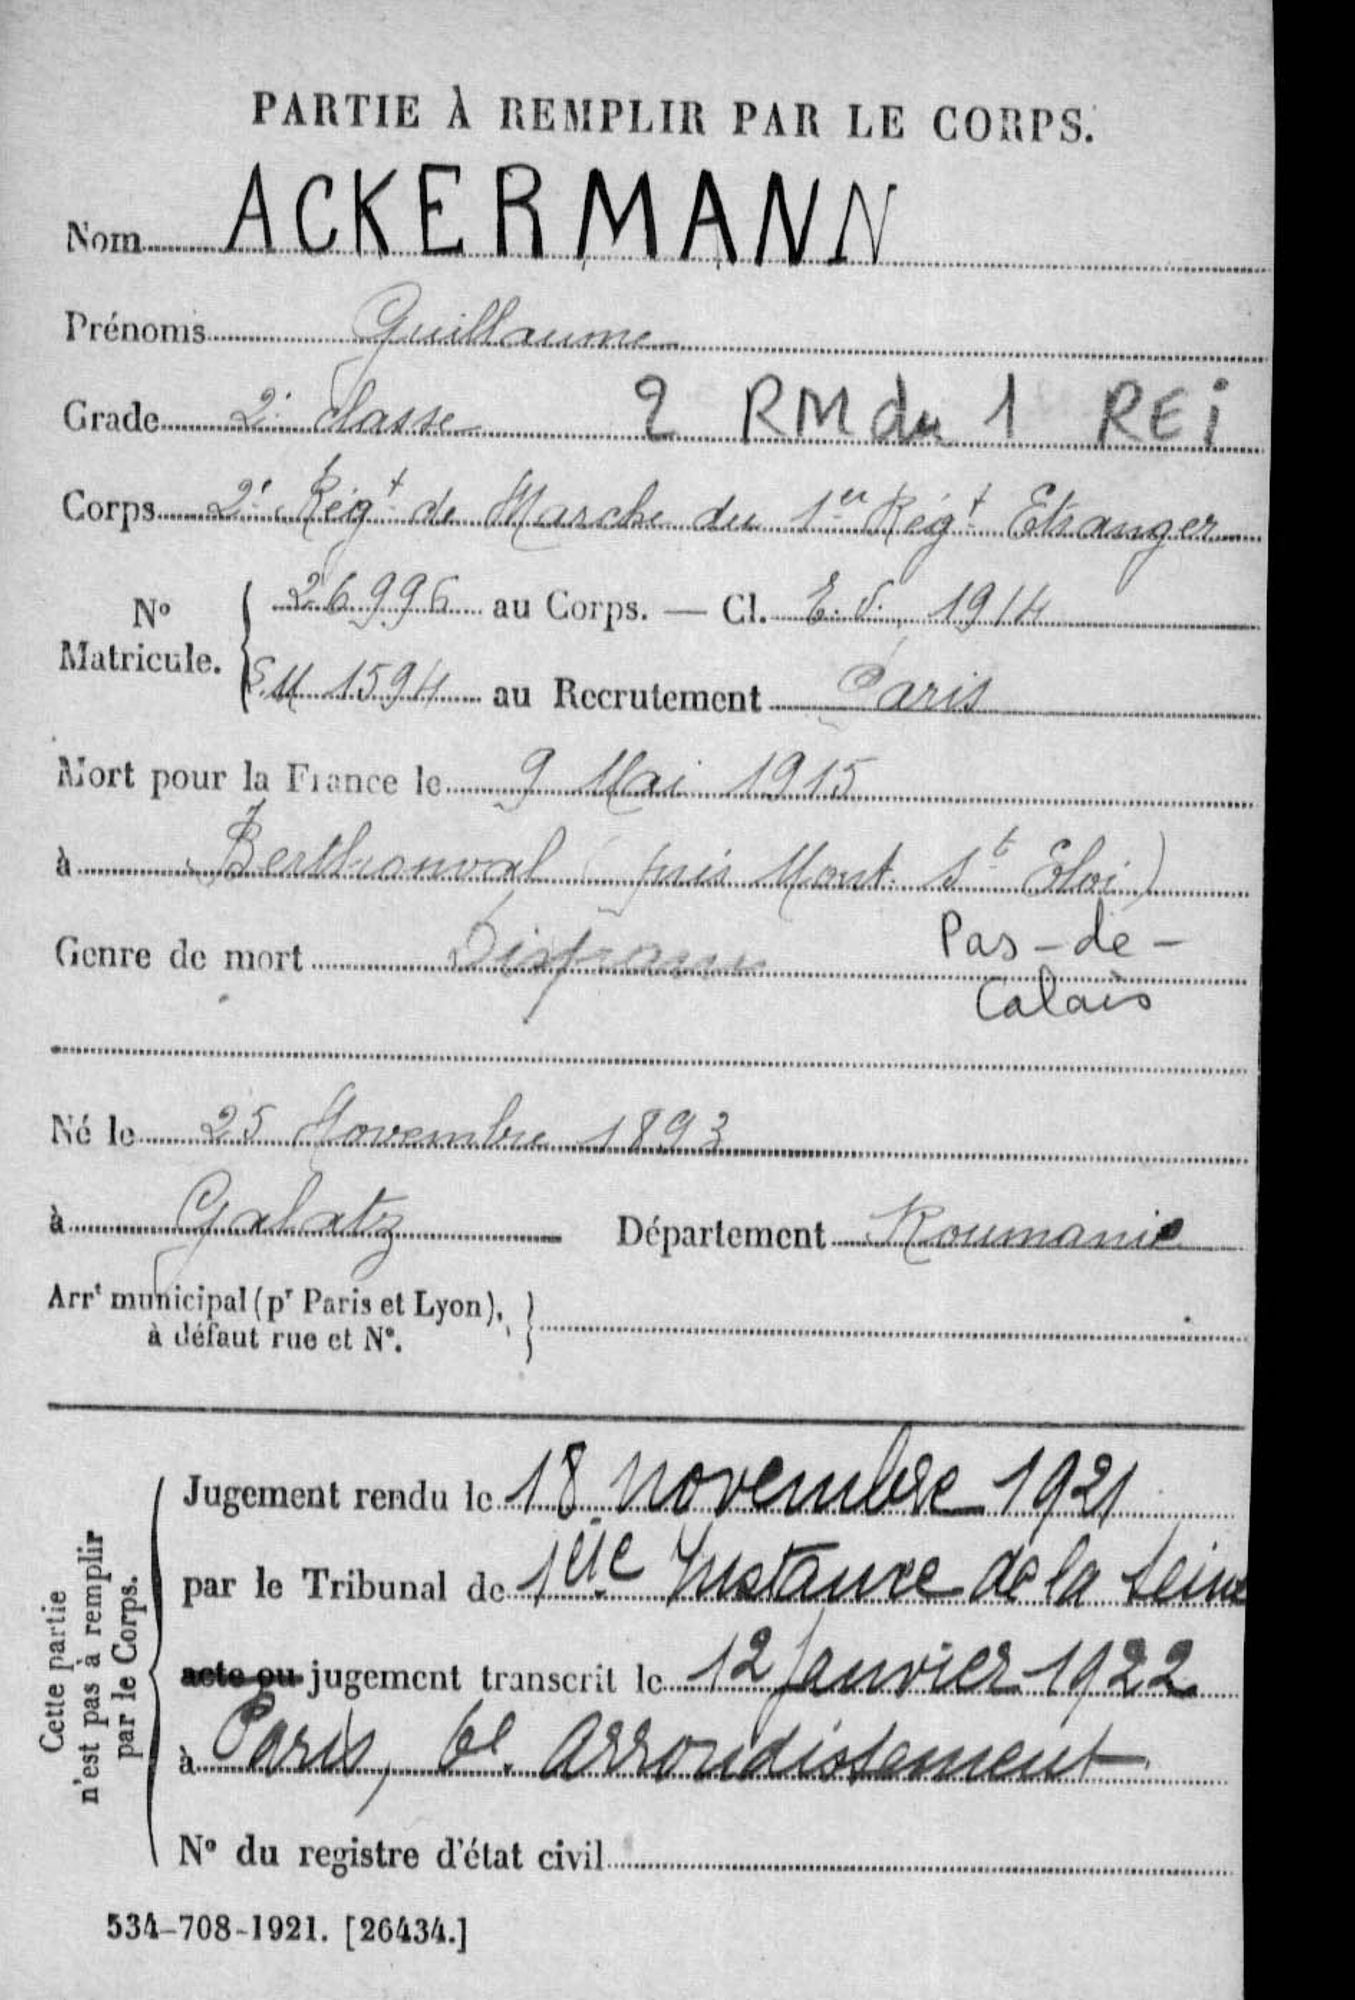 PARTIE À REMPLIR PAR LE CORPS.
Nom ACKERMANN
Prénoms Guillaume
Grade 2e classe 2 RM du 1 REi
Corps 2e Régt de Marche du 1er Régt Etranger
No Matricule. 26996 au Corps. — Cl. E.V. 1914
1594 au Recrutement Paris
Mort pour la France le 9 Mai 1915
à Berthonval (près Mont St Eloi)
Pas-de-
Genre de mort Disparu
Calais
Né le 25 Novembre 1893
à Galatz Département Roumanie
Arrt municipal (pr Paris et Lyon),
à défaut rue et No.
Cette partie
n'est pas à remplir
par le Corps.
Jugement rendu le 18 novembre 1921
par le Tribunal de 1ère Instance de la Seine
acte ou jugement transcrit le 12 janvier 1922
à Paris, 6e. arrondissement
No du registre d'état civil
534-708-1921. [26434.]